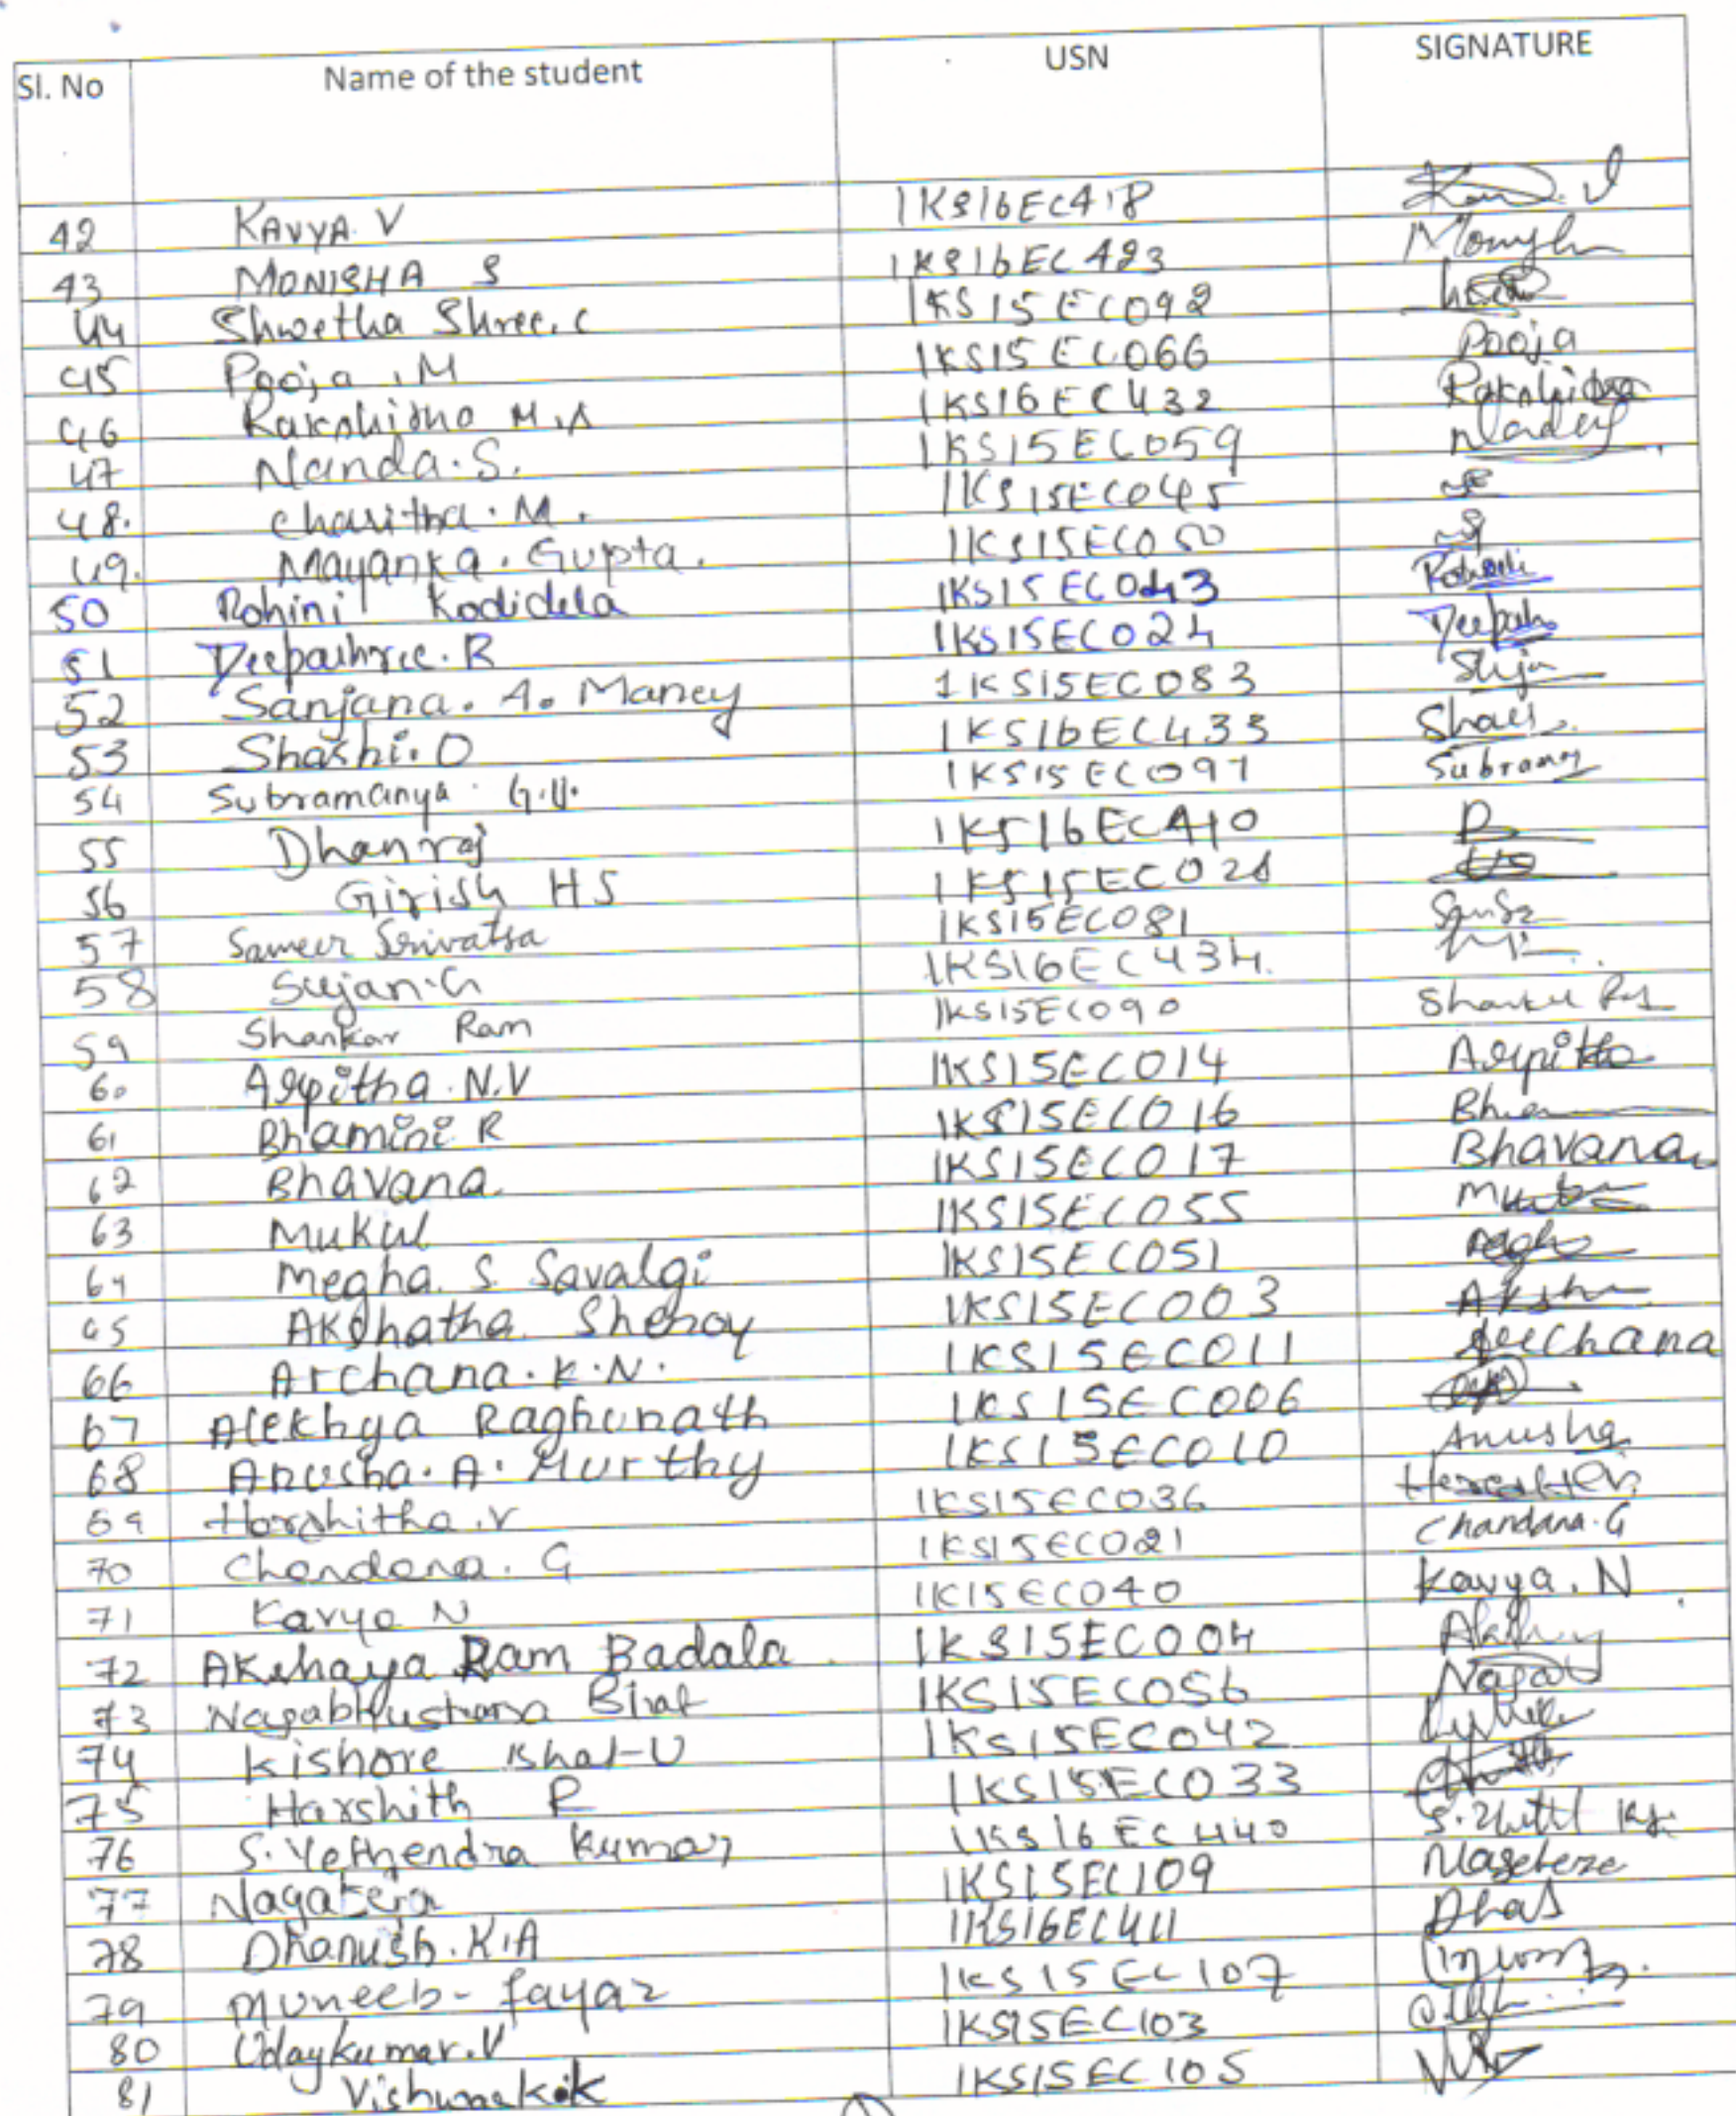 Sl. No Name of the student USN SIGNATURE
42 KAVYA. V 1KS16EC418
43 MONISHA S 1KS16EC423
44 Shwetha Shree. C 1KS15EC092
45 Pooja . M 1KS15EC066 Pooja
46 M.A 1KS16EC432
47 Nanda. S. 1KS15EC059
48. Charitha. M. 1KS15EC045
49. Mayanka. Gupta. 1KS15EC050
50 Rohini Kodidela 1KS15EC043
51 Deepashree. R 1KS15EC024
52 Sanjana. A. Maney 1KS15EC083
53 Shashi. D 1KS16EC433
54 Subramanya G.V. 1KS15EC097
55 Dhanraj 1KS16EC410
56 Girish HS 1KS15EC028
57 Sameer Srivatsa 1KS15EC081
58 Sujan. G 1KS16EC434.
59 Shankar Ram 1KS15EC090
60 Arpitha. N.V 1KS15EC014 Arpitha
61 Bhamini R 1KS15EC016
62 Bhavana. 1KS15EC017 Bhavana
63 Mukul 1KS15EC055
64 Megha. S. Savalgi 1KS15EC051
65 Akshatha Shenoy 1KS15EC003
66 Archana. K. N. 1KS15EC011 Archana
67 Alekhya Raghunath 1KS15EC006
68 Anusha. A. Murthy 1KS15EC010 Anusha
69 Harshitha. V 1KS15EC036
70 Chandana. G 1KS15EC021 Chandana. G
71 Kavya N 1K15EC040 Kavya. N
72 Akshaya Ram Badala 1KS15EC004
73 Nagabhushana Bhat 1KS15EC056
74 Kishore Bhat-U 1KS15EC042
75 Harshith R 1KS15EC033
76 S. Yethendra Kumar 1KS16EC440
77 Nagateja 1KS15EC109
78 Dhanush. K.A 1KS16EC411
79 Muneeb- fayaz 1KS15EC107
80 Udaykumar. V 1KS15EC103
81 1KS15EC105